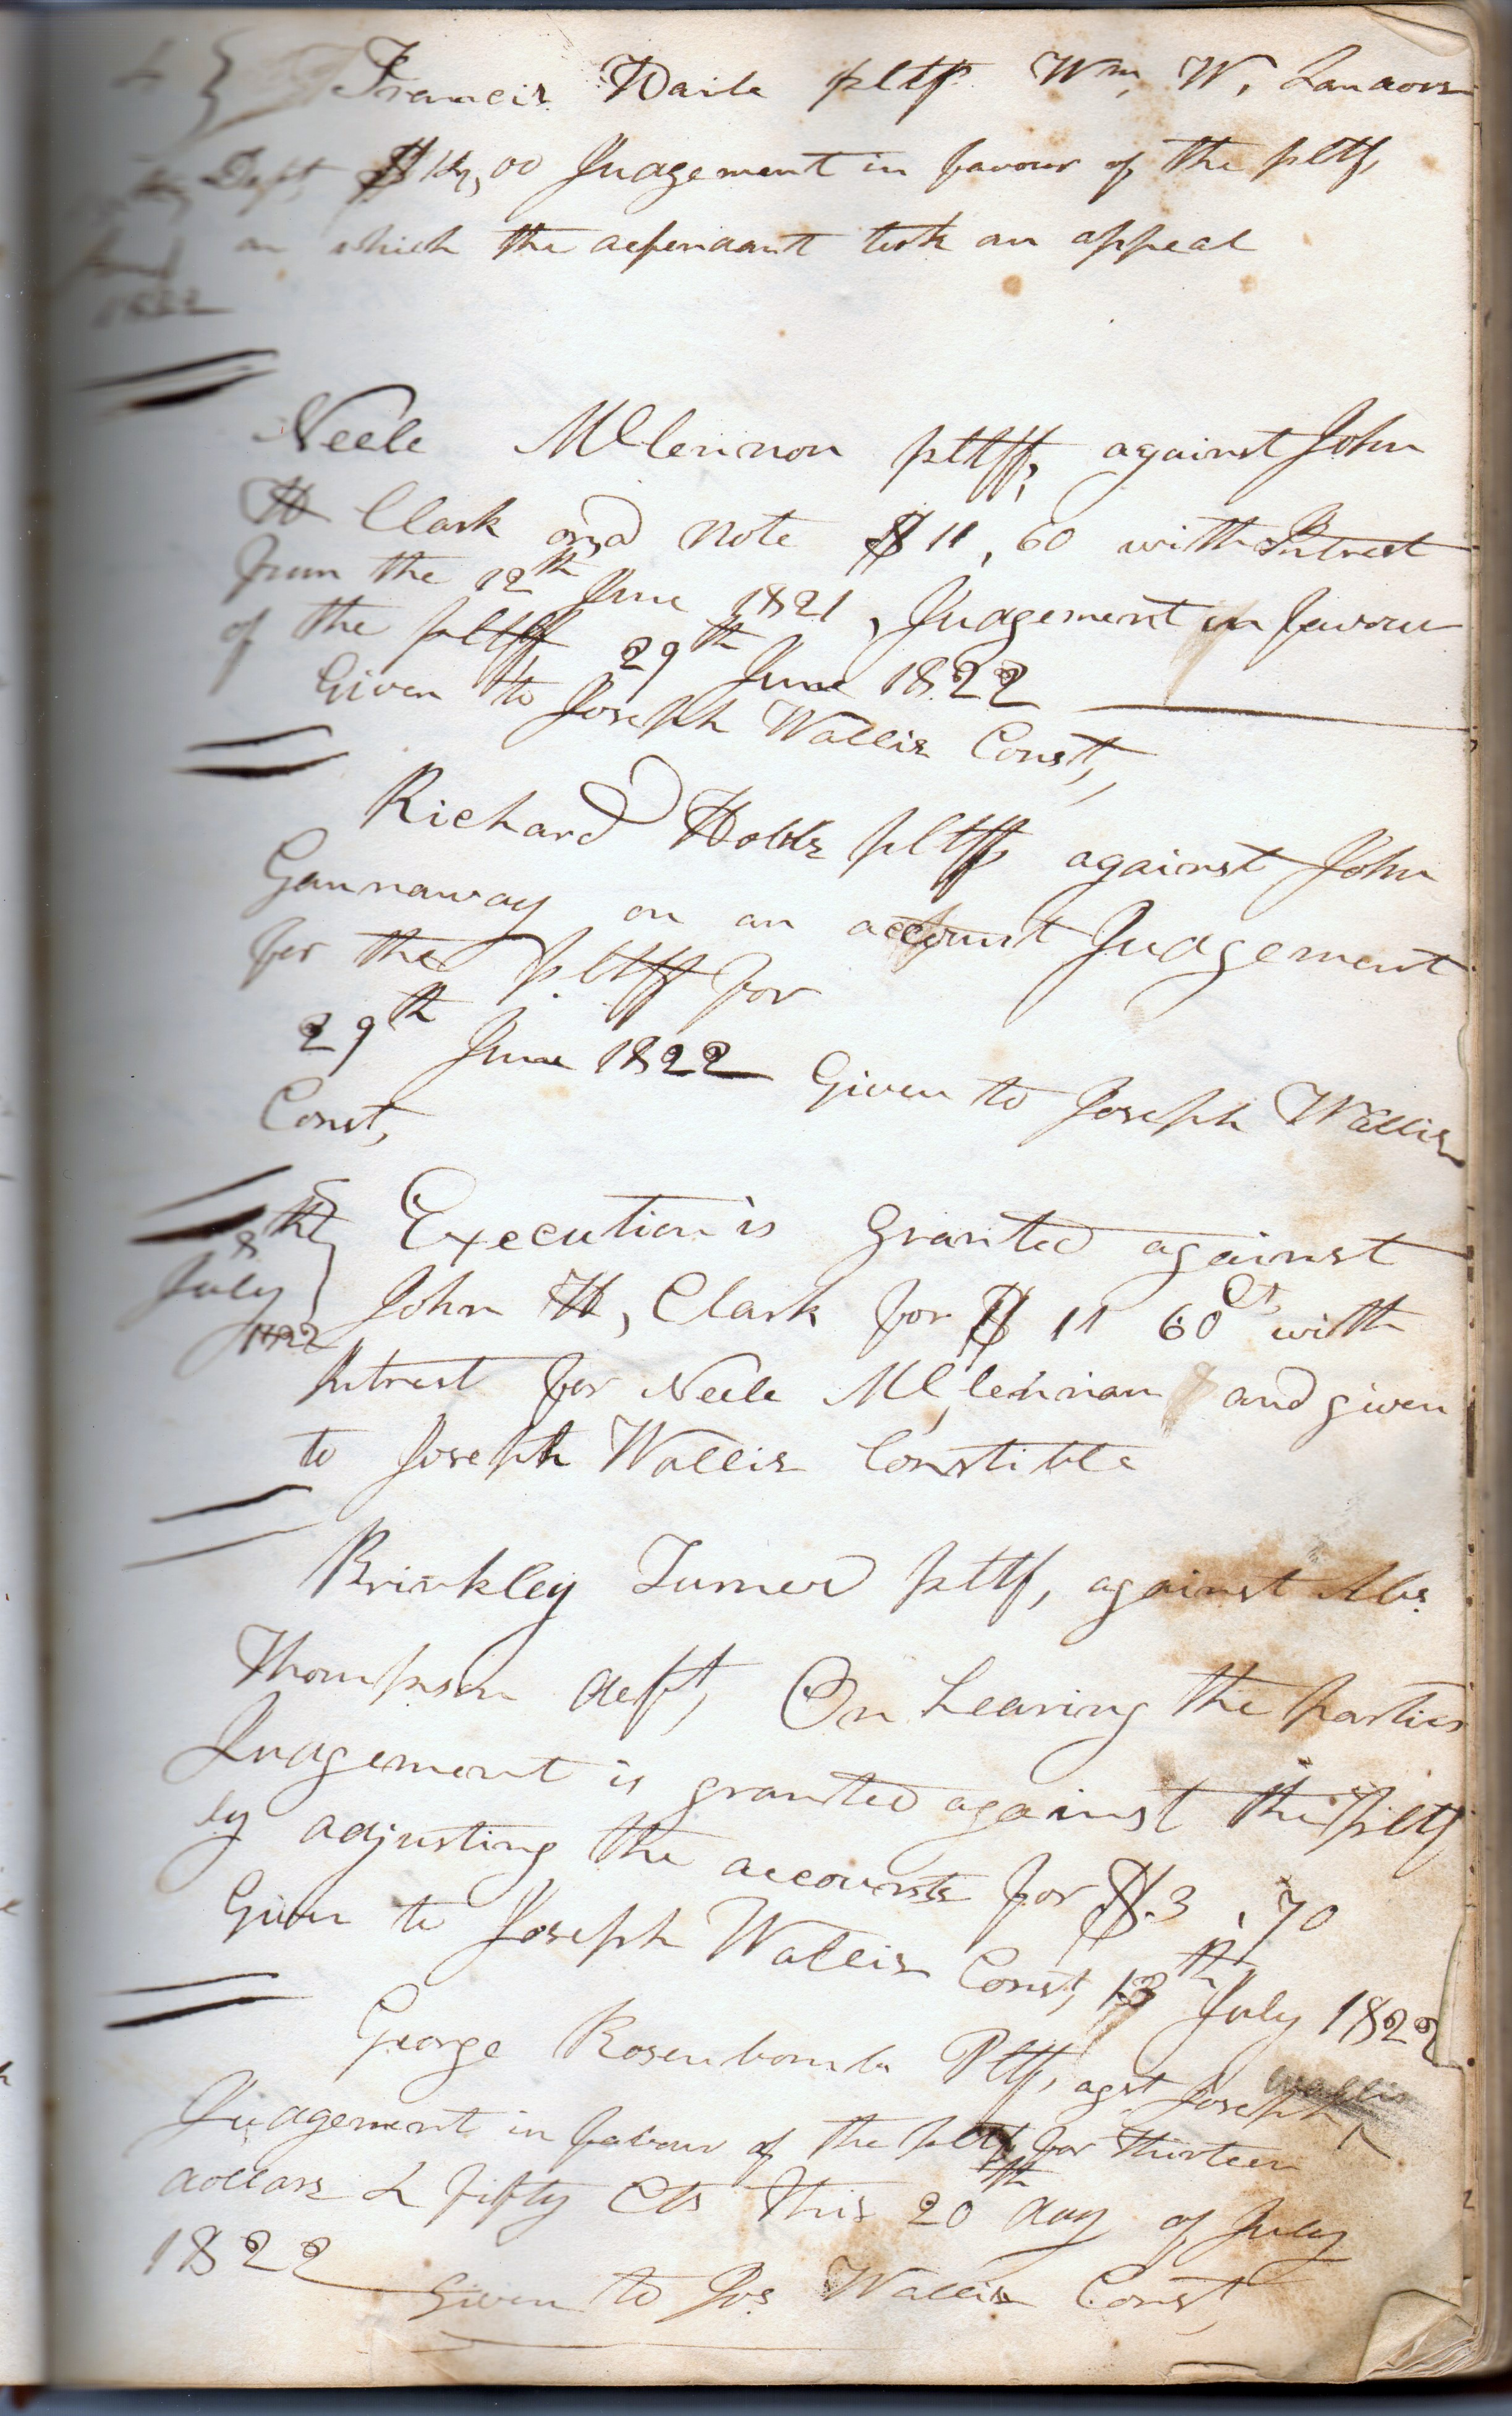 Francis Waile pltf Wm, W, Landors
Deft, $14,00 Judgement in favour of the pltf,
on which the defendant took an appeal
1822
Neele McLennon pltff, against John
H Clark on a note $11,60 with Intrest
from the 12th June 1821, Judgement in favour
of the pltff 29th June 1822
Given to Joseph Wallis Const,
Richard Hobbs pltff against John
Gannaway on an account Judgement
for the pltff for
29th June 1822 Given to Joseph Wallis
Const,
8th
July
1822
Execution is granted against
John H, Clark for $11 60 Cts with
Intrest for Neele McLennan and given
to Joseph Wallis Constible
Brinkley Turner pltf, against Abs
Thompson deft, On hearing the parties
Judgement is granted against the pltf
by adjusting the accounts for $3,70
Given to Joseph Wallis Const, 13th July 1822
George Rosenbomb Pltf, agst Joseph Wallis
Judgement in favour of the pltf for thirteen
dollars & fifty Cts this 20th day of July
1822 Given to Jos Wallis Const,